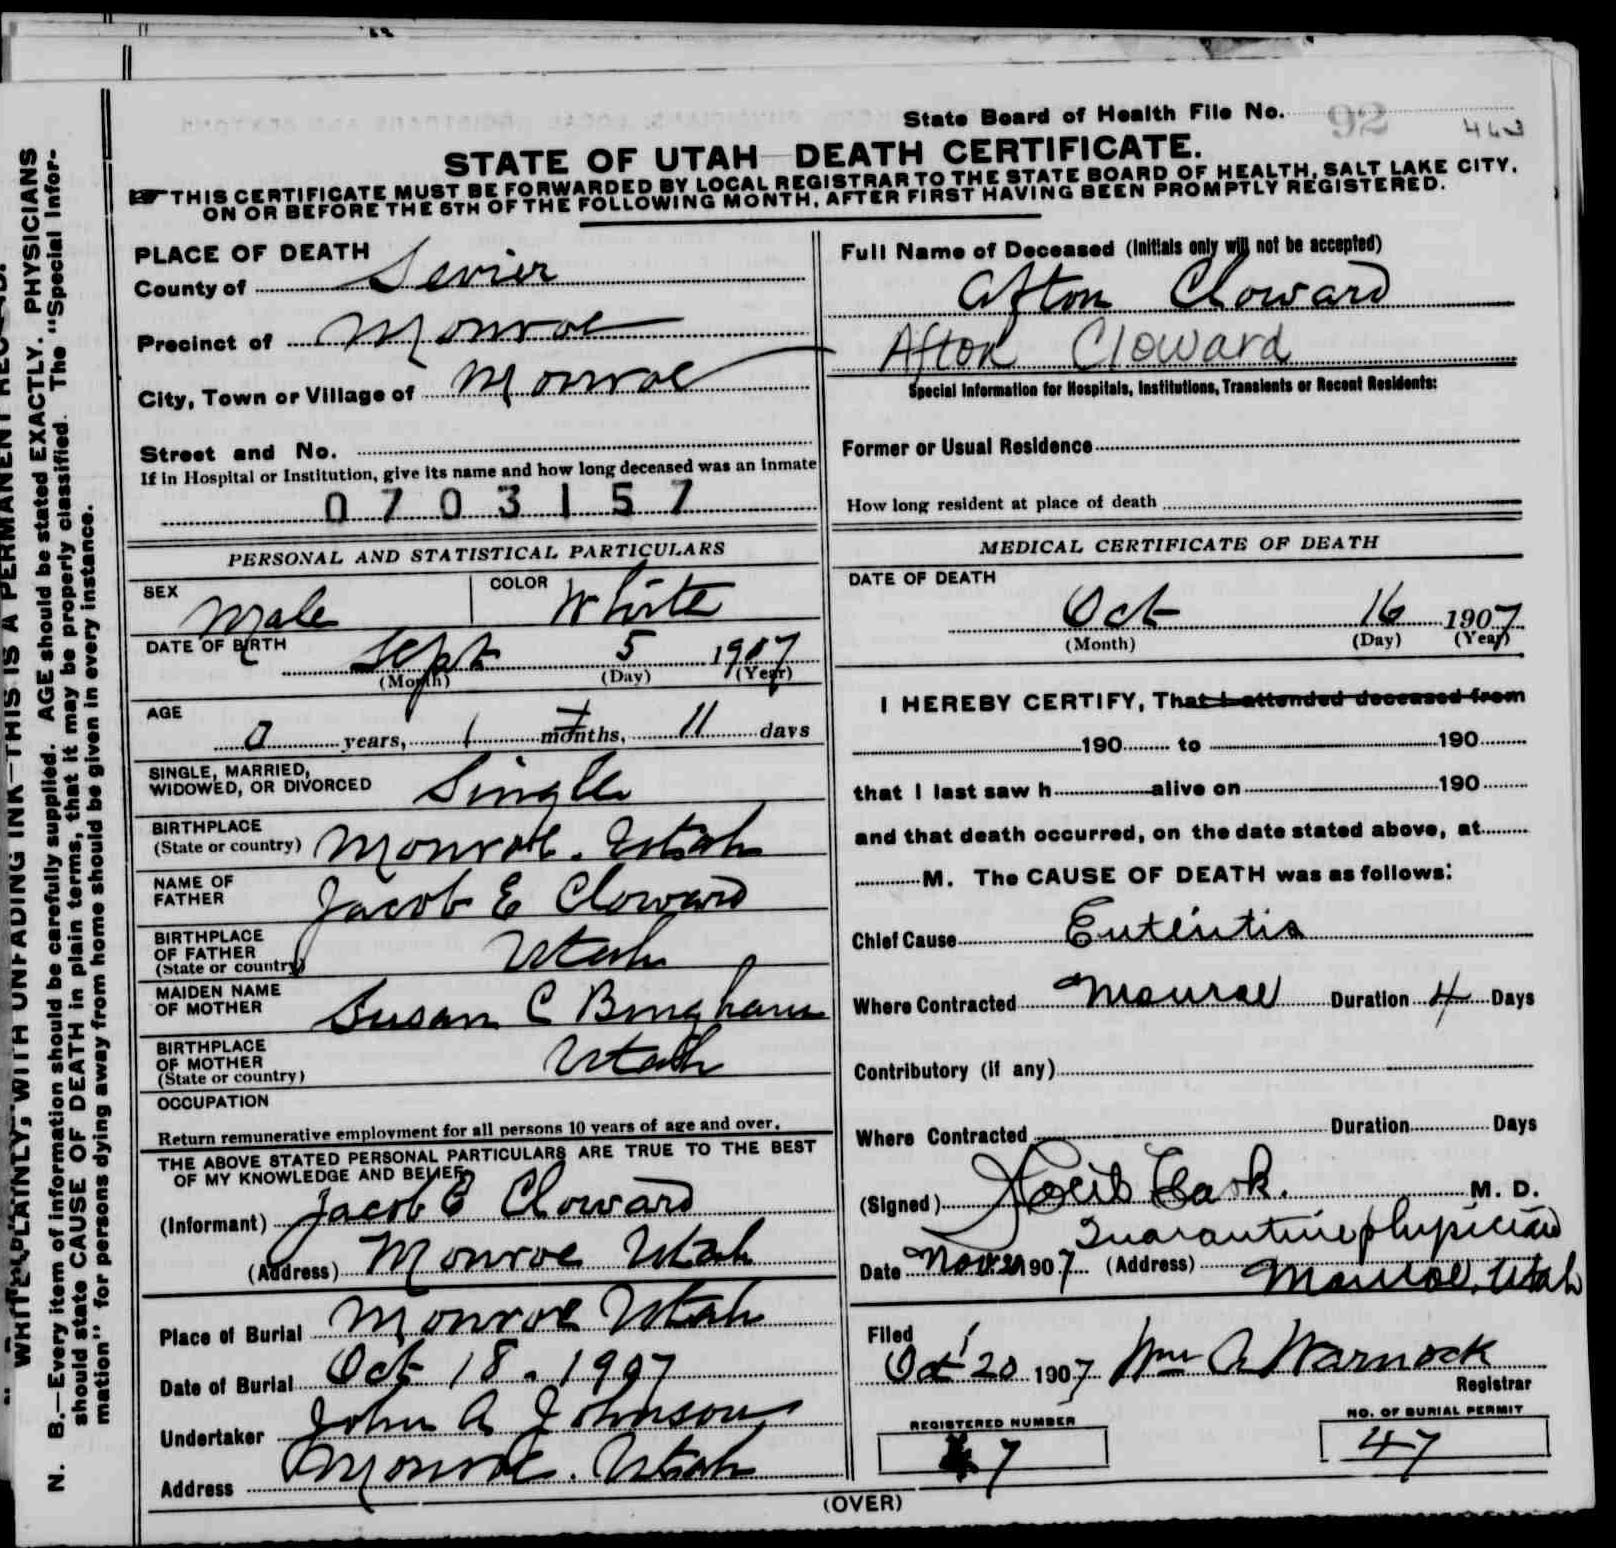 State Board of Health File No. 92 463
STATE OF UTAH DEATH CERTIFICATE.
THIS CERTIFICATE MUST BE FORWARDED BY LOCAL REGISTRAR TO THE STATE BOARD OF HEALTH, SALT LAKE CITY,
ON OR BEFORE THE 5TH OF THE FOLLOWING MONTH, AFTER FIRST HAVING BEEN PROMPTLY REGISTERED.
PLACE OF DEATH
County of Sevier
Precinct of Monroe
City, Town or Village of Monroe
Street and No.
If in Hospital or Institution, give its name and how long deceased was an inmate
0703157
PERSONAL AND STATISTICAL PARTICULARS
SEX Male COLOR White
DATE OF BIRTH Sept 5 1907
(Month) (Day) (Year)
AGE 0 years, 1 months, 11 days
SINGLE, MARRIED,
WIDOWED, OR DIVORCED Single
BIRTHPLACE
(State or country) Monroe. Utah
NAME OF
FATHER Jacob E Cloward
BIRTHPLACE
OF FATHER
(State or country) Utah
MAIDEN NAME
OF MOTHER Susan C Bingham
BIRTHPLACE
OF MOTHER
(State or country) Utah
OCCUPATION
Return remunerative employment for all persons 10 years of age and over.
THE ABOVE STATED PERSONAL PARTICULARS ARE TRUE TO THE BEST
OF MY KNOWLEDGE AND BELIEF
(Informant) Jacob E Cloward
(Address) Monroe Utah
Place of Burial Monroe Utah
Date of Burial Oct 18. 1907
Undertaker John A Johnson
Address Monroe. Utah
Full Name of Deceased (Initials only will not be accepted)
Afton Cloward
Afton Cloward
Special Information for Hospitals, Institutions, Transients or Recent Residents:
Former or Usual Residence
How long resident at place of death
MEDICAL CERTIFICATE OF DEATH
DATE OF DEATH
Oct 16 1907
(Month) (Day) (Year)
I HEREBY CERTIFY, That I attended deceased from
190 to 190
that I last saw h alive on 190
and that death occurred, on the date stated above, at
M. The CAUSE OF DEATH was as follows:
Chief Cause Enteintis
Where Contracted Monroe Duration 4 Days
Contributory (if any)
Where Contracted Duration Days
(Signed) M. D.
Quarantine physician
Date Nov 1907 (Address) Monroe, Utah
Filed
Oct 20 1907 Wm A Warnock
Registrar
REGISTERED NUMBER
7
NO. OF BURIAL PERMIT
47
(OVER)
WRITE PLAINLY, WITH UNFADING INK—THIS IS A PERMANENT
N. B.—Every item of information should be carefully supplied. AGE should be stated EXACTLY. PHYSICIANS
should state CAUSE OF DEATH in plain terms, that it may be properly classified. The "Special Infor-
mation" for persons dying away from home should be given in every instance.